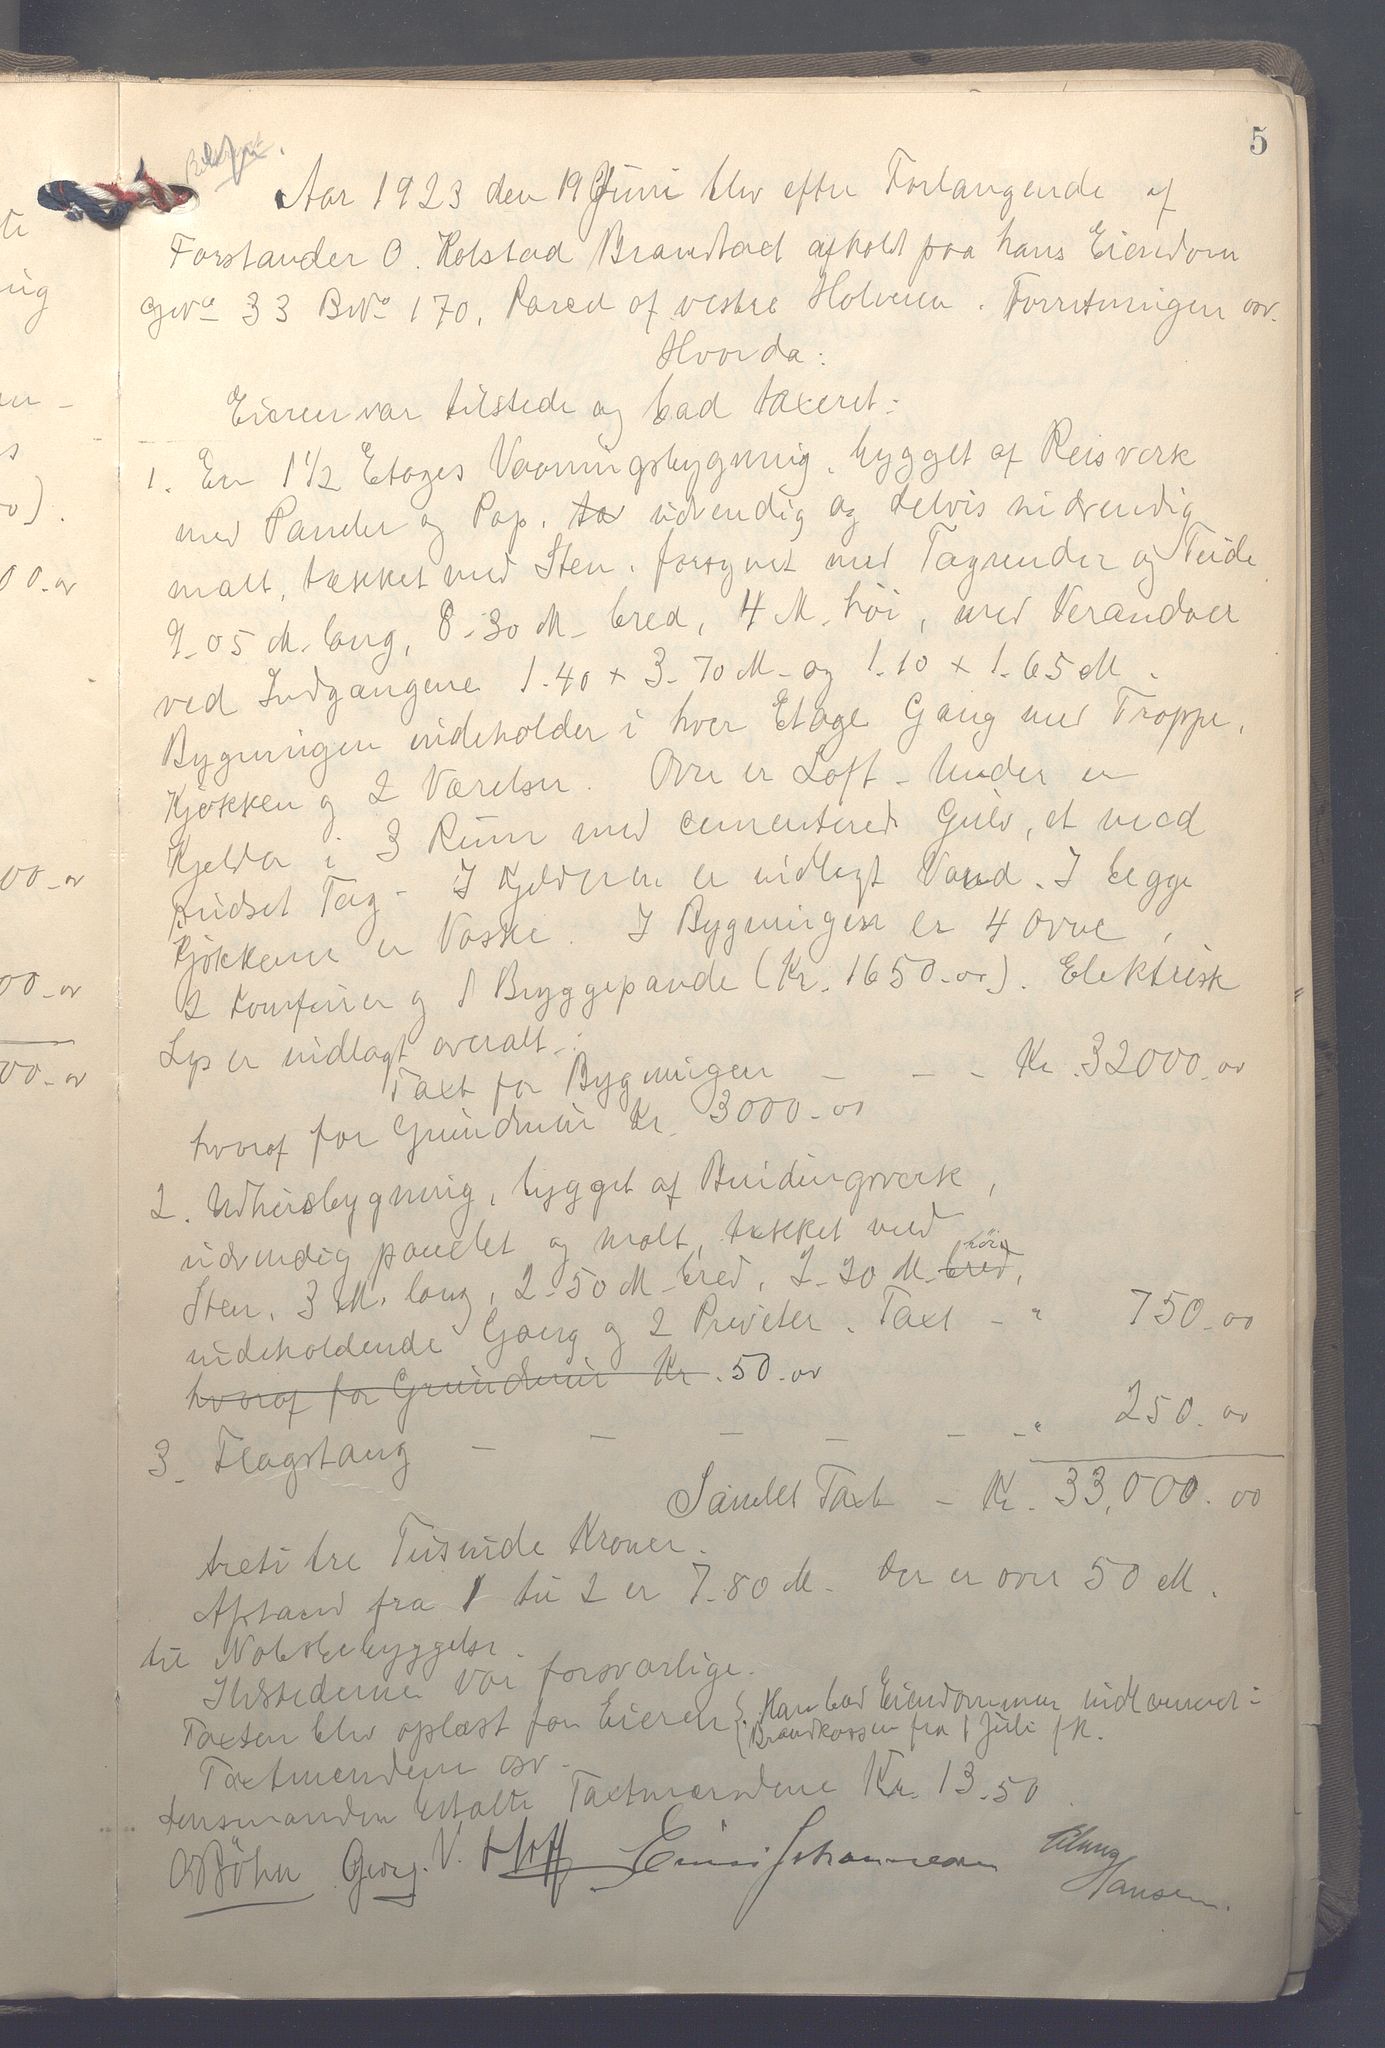 5
Aar 1923 den 19 Juni blev efter Forlangende af
Forstander O. Kolstad Brandtaxt afholdt paa hans Eiendom
GNo 33 BNo 170, Parcel af vestre Holmen. Forretningen osv.
Hvorda:
Eieren var tilstede og bad taxeret:
1. En 1 1/2 Etages Vaaningsbygning, bygget af Reisverk
med Panden og Pap, udvendig og delvis indvendig
malt, tækket med Sten, forsynet med Tagrender og
9-05 M. lang, 8-30 M. bred, 4 M. høi, med Verandaer
ved Indgangene 1-40 x 3-70 M. og 1-10 x 1-65 M.
Bygningen indeholder i hver Etage Gang med Trappe,
Kjøkken og 2 Værelser. Over er Loft. Under er
Kjelder i 3 Rum med cementered Gulv, et med
pudset Tag. I Kjelderen er indlagt Vand. I begge
Kjøkkener er Vaske. I Bygningen er 4 Ovne,
2 Komfurer og 1 Bryggepande (Kr. 1650-00). Elektrisk
Lys er indlagt overalt.
Taxt for Bygningen - - - Kr. 32000-00
hvoraf for Grundmur Kr. 3000-00
2. Udhusbygning, bygget af Bindingsverk,
udvendig panelet og malt, tækket med
Sten, 3 M. lang, 2-50 M. bred, 2-20 M. bred, høi
indeholdende Gang og 2 Priveter. Taxt - " 750-00
hvoraf for Grundmur Kr. 50-00
3. Flagstang - - - - - - " 250-00
Samlet Taxt - Kr. 33,000.00
treti tre Tusinde Kroner.
Afstand fra 1 til 2 er 7-80 M. Der er over 50 M.
til Nabobebyggelse.
Ildstederne var forsvarlige.
Taxten blev oplæst for Eieren. Han bad Eiendommen indlemmet i
Brandkassen fra 1 Juli f k.
Taxtmændene osv.
Lensmanden betalte Taxtmændene Kr. 13-50.
Georg V. Hoff Johannesen
Hansen.